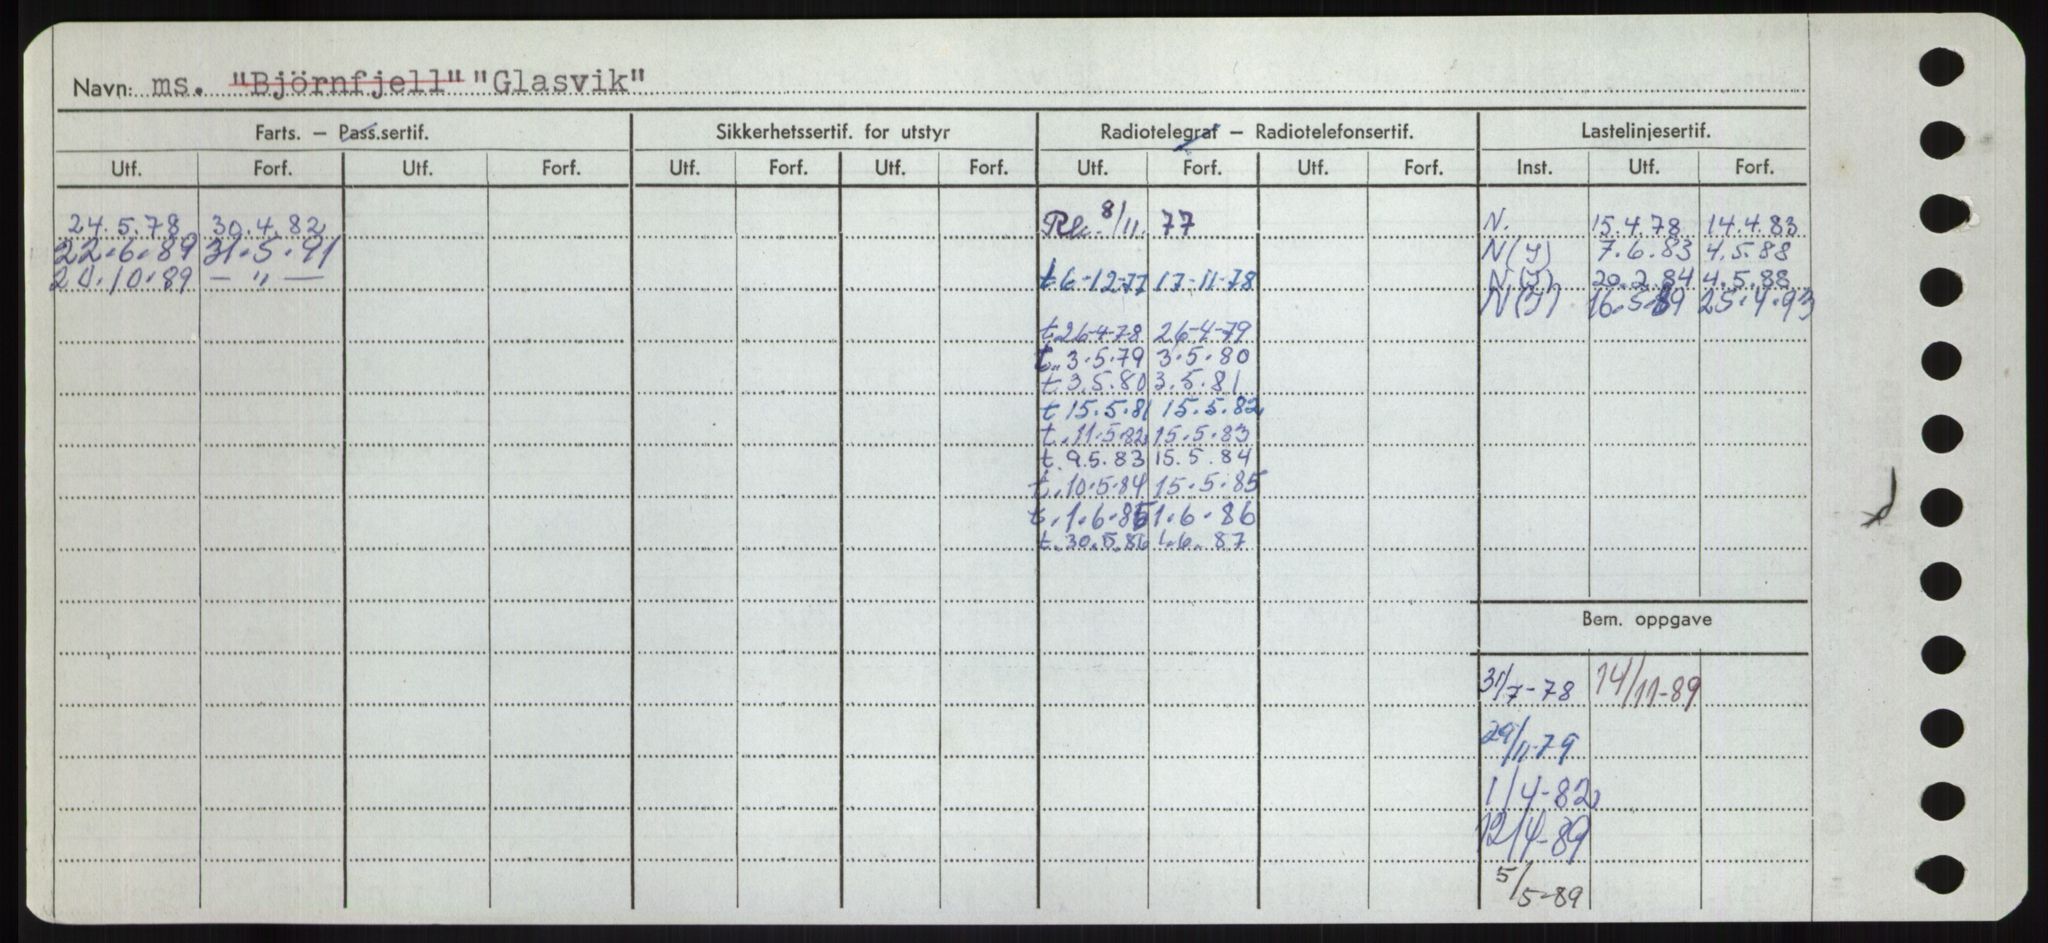 Navn: ms. "Björnfjell" "Glasvik"
Farts. – Pass.sertif. Sikkerhetssertif. for utstyr Radiotelegraf – Radiotelefonsertif. Lastelinjesertif.
Utf. Forf. Utf. Forf. Utf. Forf. Utf. Forf. Utf. Forf. Utf. Forf. Inst. Utf. Forf.
24.5.78 30.4.82 8/11. 77 N. 15.4.78 14.4.83
22.6.89 31.5.91 N(I) 7.6.83 4.5.88
24.10.89 — " — t 6-12-77 17-11-78 N(I) 20.2.84 4.5.88
N(I) 16.5.89 25.4.93
t.26-4-78 26-4-79
t. 3.5.79 3.5.80
t 3.5.80 3.5.81
t 15.5.81 15.5.82
t. 11.5.82 15.5.83
t. 9.5.83 15.5.84
t. 10.5.84 15.5.85
t. 1.6.85 1.6.86
t. 30.5.86 1.6.87
Bem. oppgave
31/7-78 14/11-89
29/11-79
1/4-82
12/4-89
5/5-89